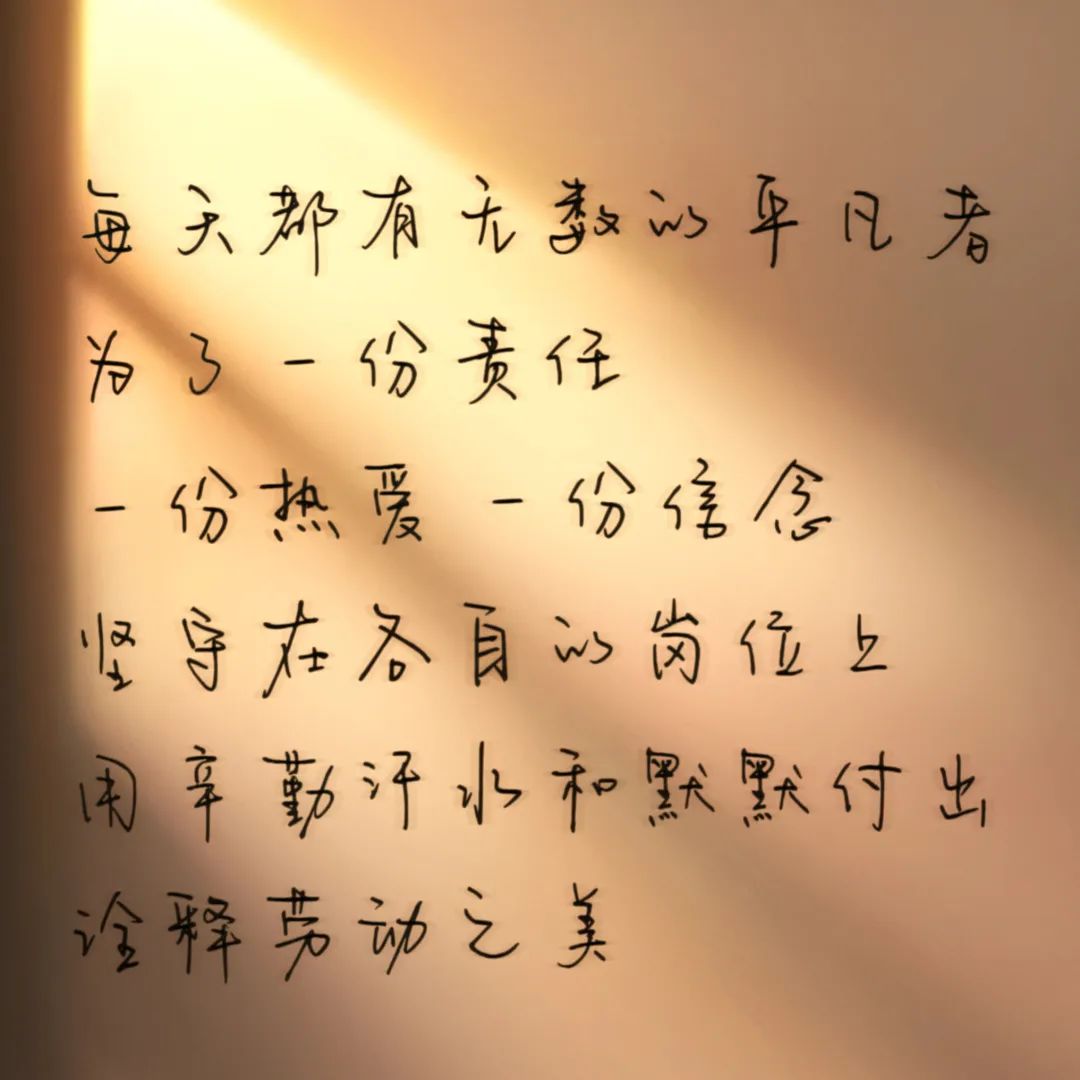 每天都有无数的平凡者
为了一份责任
一份热爱 一份信念
坚守在各自的岗位上
用辛勤汗水和默默付出
诠释劳动之美